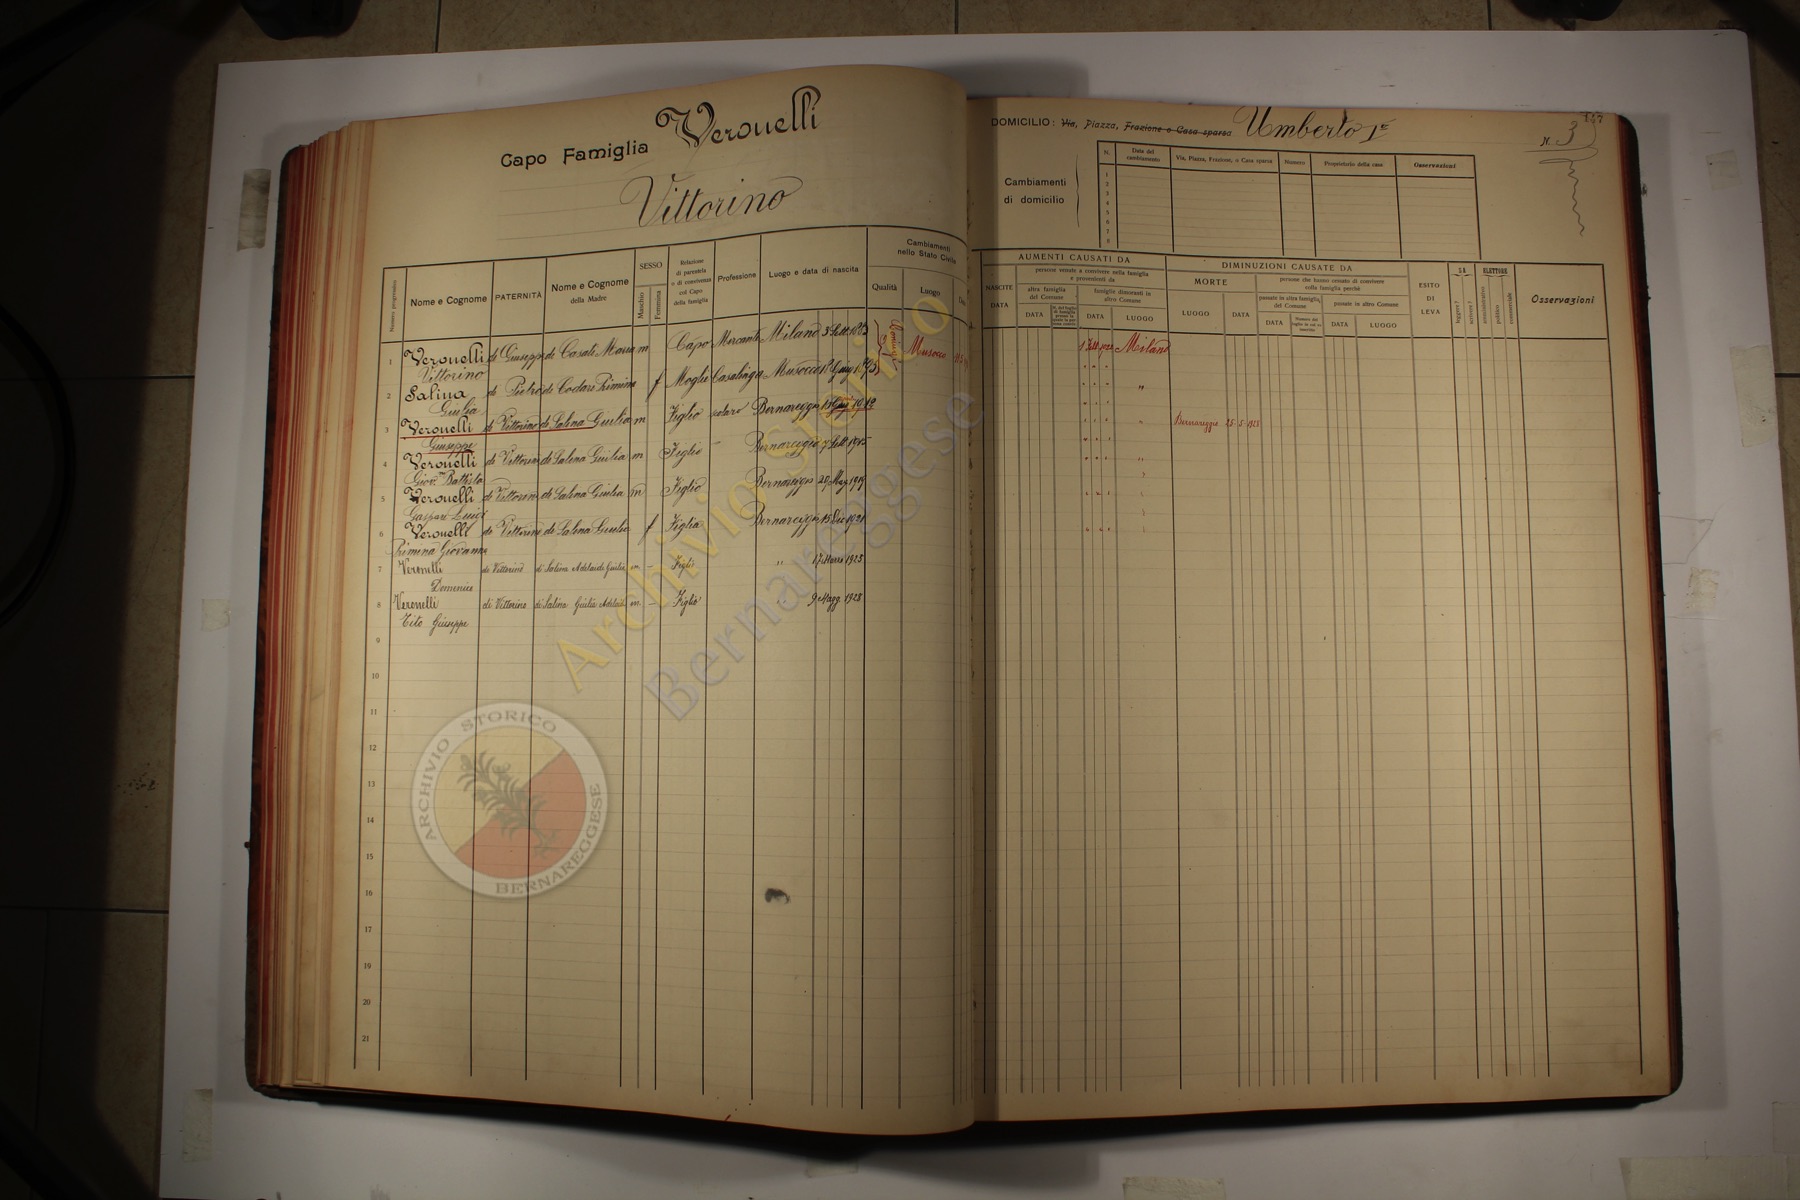 Capo Famiglia Veronelli
Vittorino
Numero progressivo
Nome e Cognome
PATERNITÀ
Nome e Cognome
della Madre
SESSO
Maschio
Femmina
Relazione
di parentela
o di convivenza
col Capo
della famiglia
Professione
Luogo e data di nascita
Cambiamenti
nello Stato Civile
Qualità
Luogo
1 Veronelli di Giuseppe di Casati Maria m Capo Mercante Milano 3
Vittorino
Musocco
2 Salina di Pietro f Moglie Casalinga Musocco
Giulia
3 Veronelli di Vittorino di Salina Giulia m Figlio scolaro Bernareggio
Giuseppe
4 Veronelli di Vittorino di Salina Giulia m Figlio – Bernareggio 7
Giov. Battista
5 Veronelli di Vittorino di Salina Giulia m Figlio Bernareggio
Gaspare Luigi
6 Veronelli di Vittorino di Salina Giulia f Figlia Bernareggio 15 Dic 1921
Primina Giovanna
7 Veronelli di Vittorino di Salina Adelaide Giulia m – Figlio " 17 Marzo 1925
Domenico
8 Veronelli di Vittorino di Salina Giulia Adelaide m – Figlio " 9 Magg 1928
Tito Giuseppe
9
10
11
12
13
14
15
16
17
18
19
20
21
DOMICILIO: Via, Piazza, Frazione o Casa sparsa Umberto I°
N. 3
Cambiamenti
di domicilio
N.
Data del
cambiamento
Via, Piazza, Frazione, o Casa sparsa
Numero
Proprietario della casa
Osservazioni
1
2
3
4
5
6
7
8
AUMENTI CAUSATI DA
NASCITE
DATA
persone venute a convivere nella famiglia
e provenienti da
altra famiglia
del Comune
DATA
famiglie dimoranti in
altro Comune
DATA
LUOGO
DIMINUZIONI CAUSATE DA
MORTE
LUOGO
DATA
persone che hanno cessato di convivere
colla famiglia perchè
passate in altra famiglia
del Comune
DATA
passate in altro Comune
DATA
LUOGO
ESITO
DI
LEVA
SA
leggere?
scrivere?
ELETTORE
amministrativo
politico
commerciale
Osservazioni
Milano
"
Bernareggio 25-5-1923
Archivio Storico
Bernareggese
ARCHIVIO STORICO
BERNAREGGESE